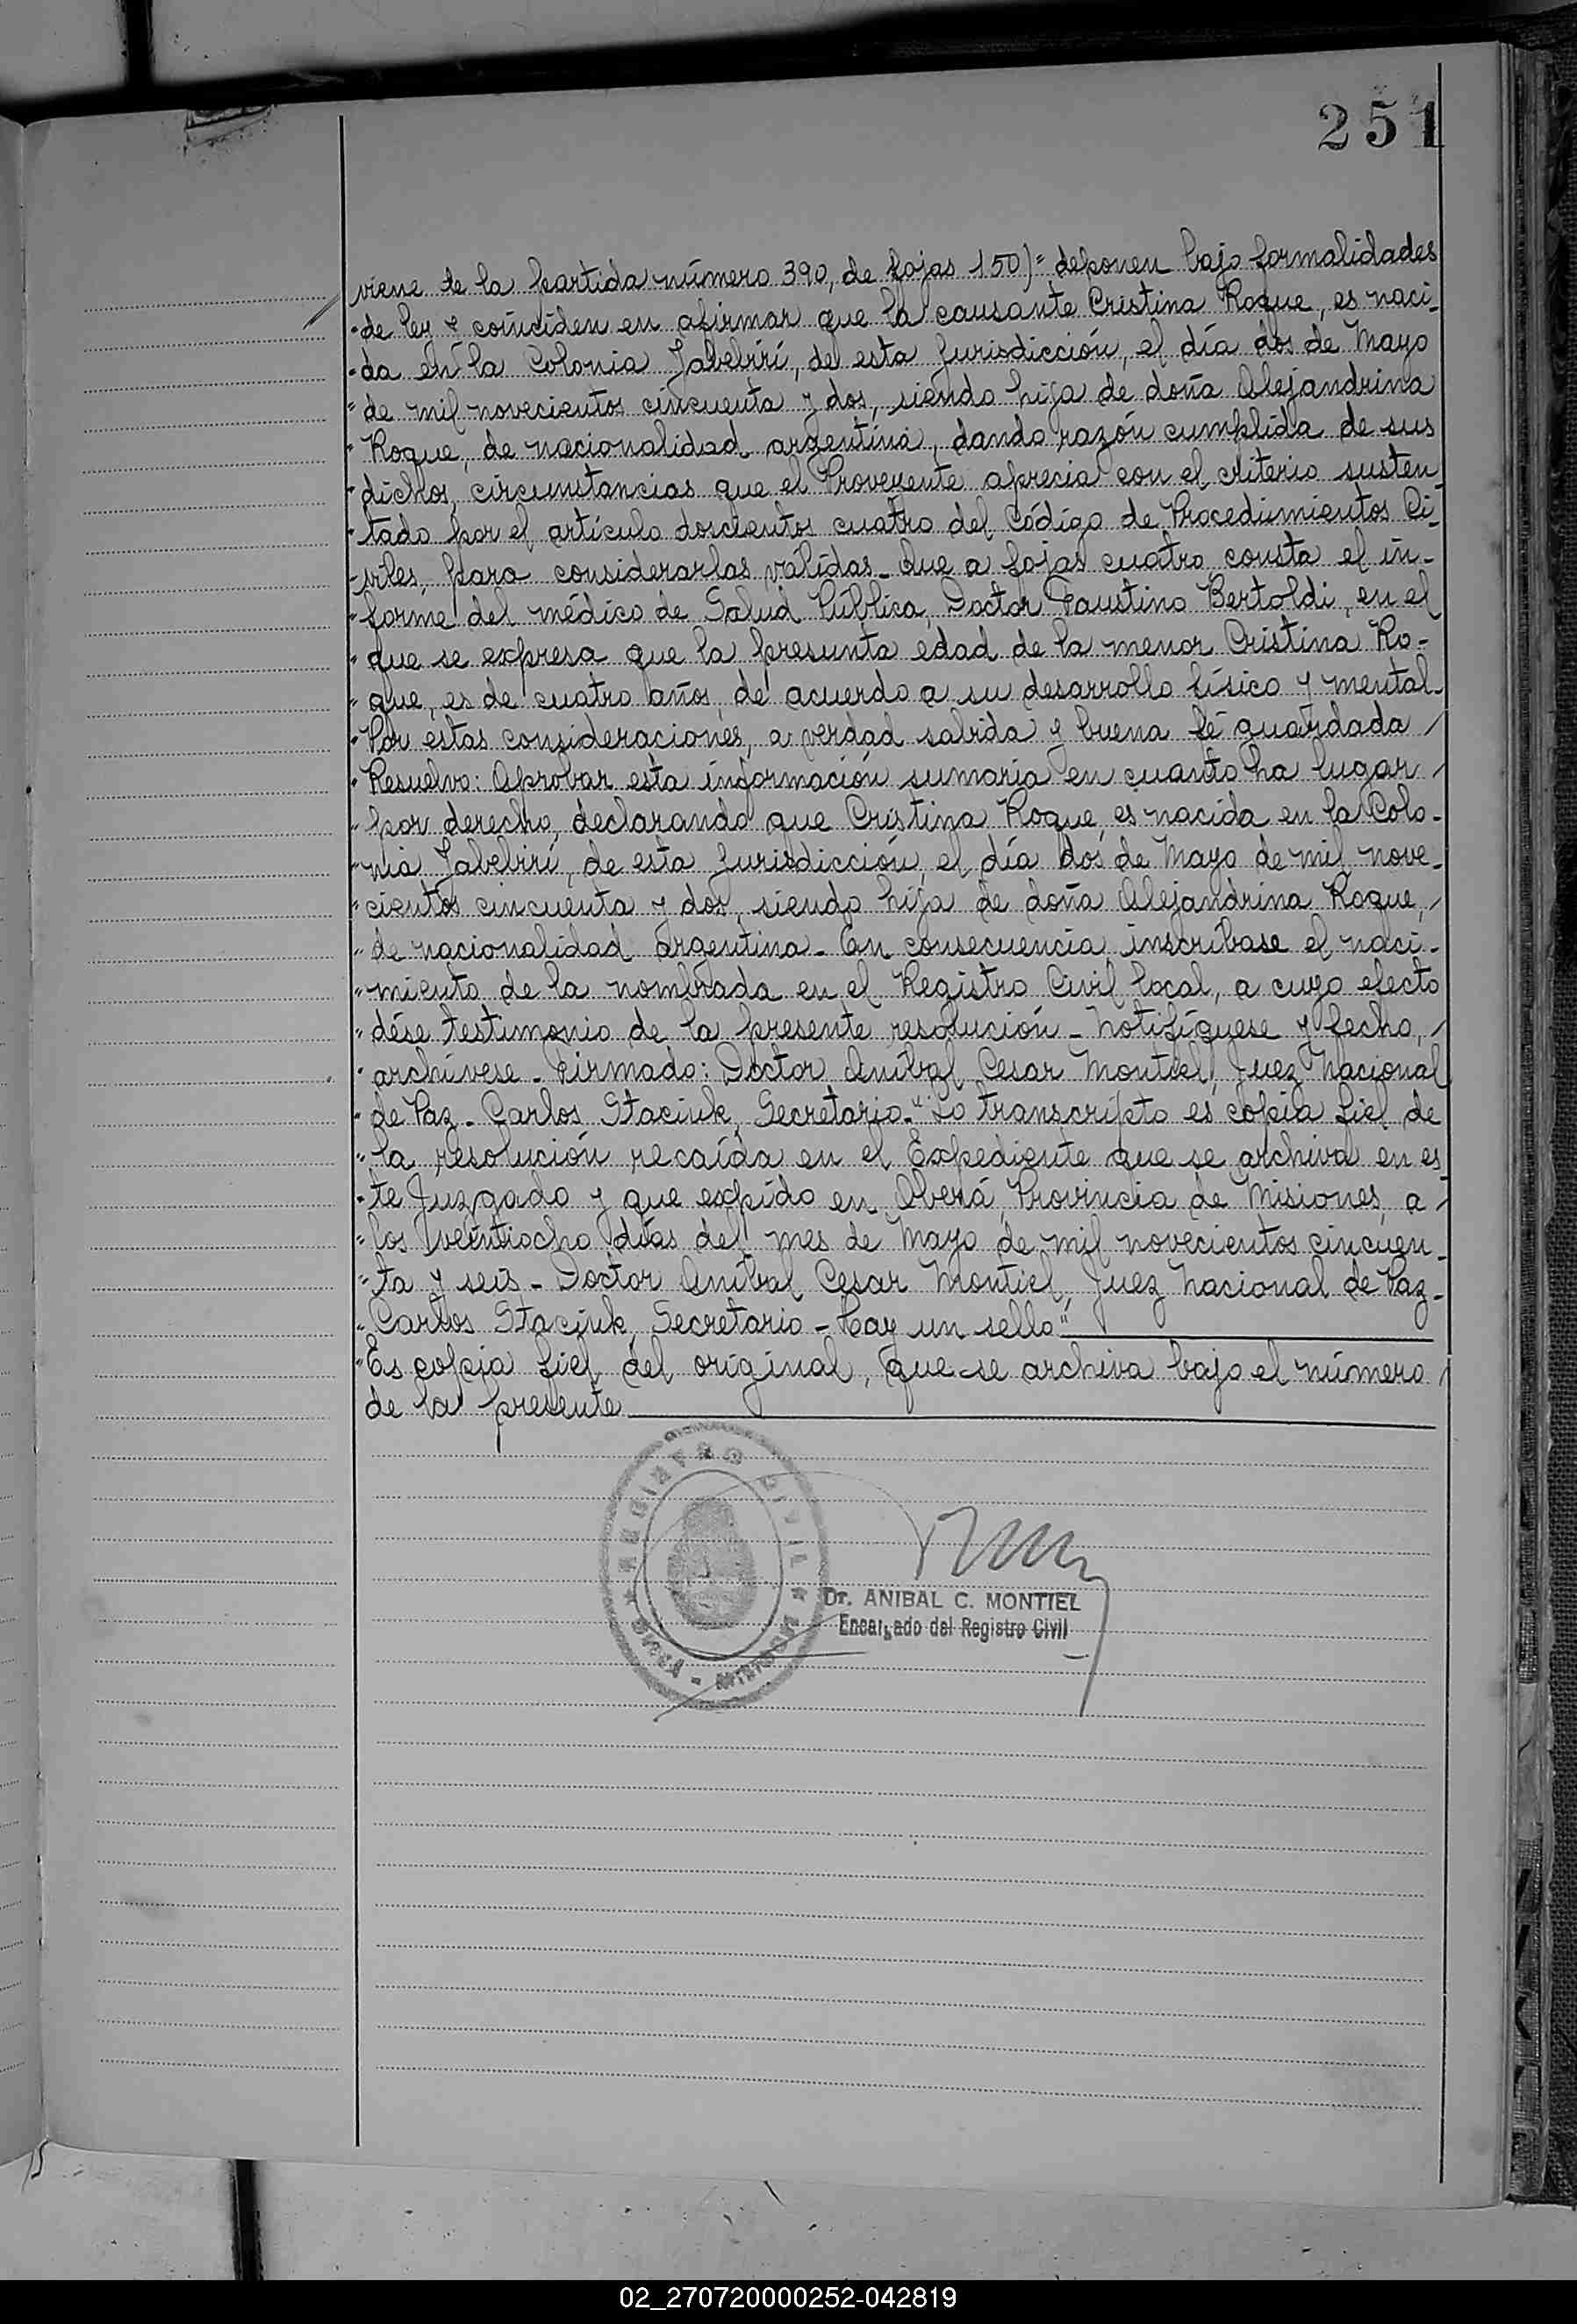 251
viene de la partida número 390, de fojas 150)" deponen bajo formalidades
"de ley y coinciden en afirmar que la causante Cristina Roque, es naci-
"da en la Colonia Yabebirí, de esta Jurisdicción, el día dos de Mayo
"de mil novecientos cincuenta y dos, siendo hija de doña Alejandrina
"Roque, de nacionalidad argentina, dando razón cumplida de sus
"dichos, circunstancias que el Proveyente aprecia con el criterio susten
"tado por el artículo doscientos cuatro del Código de Procedimientos Ci-
"viles, para considerarlas válidas_ Que a fojas cuatro consta el in-
"forme del médico de Salud Pública, Doctor Faustino Bertoldi, en el
"que se expresa que la presunta edad de la menor Cristina Ro-
"que, es de cuatro años, de acuerdo a su desarrollo físico y mental-
"Por estas consideraciones, a verdad sabida y buena fé guardada /
"Resuelvo: Aprobar esta información sumaria en cuanto ha lugar /
"por derecho, declarando que Cristina Roque, es nacida en la Colo-
"nia Yabebirí, de esta Jurisdicción, el día dos de Mayo de mil nove-
"cientos cincuenta y dos, siendo hija de doña Alejandrina Roque, /
"de nacionalidad argentina- En consecuencia, inscríbase el naci-
"miento de la nombrada en el Registro Civil local, a cuyo efecto
"dése testimonio de la presente resolución- Notifíquese y fecho, /
"archívese- Firmado: Doctor Aníbal Cesar Montiel, Juez Nacional
"de Paz- Carlos Staciuk, Secretario-" "Lo transcripto es copia fiel de
"la resolución recaída en el Expediente que se archiva en es
"te Juzgado y que expido en Oberá, Provincia de Misiones, a /
"los veintiocho días del mes de Mayo de mil novecientos cincuen-
"ta y seis- Doctor Aníbal Cesar Montiel, Juez Nacional de Paz-
"Carlos Staciuk, Secretario- Hay un sello"
"Es copia fiel del original, que se archiva bajo el número /
de la presente
REGISTRO CIVIL
OBERÁ - MISIONES
Dr. ANIBAL C. MONTIEL
Encargado del Registro Civil
02_270720000252-042819